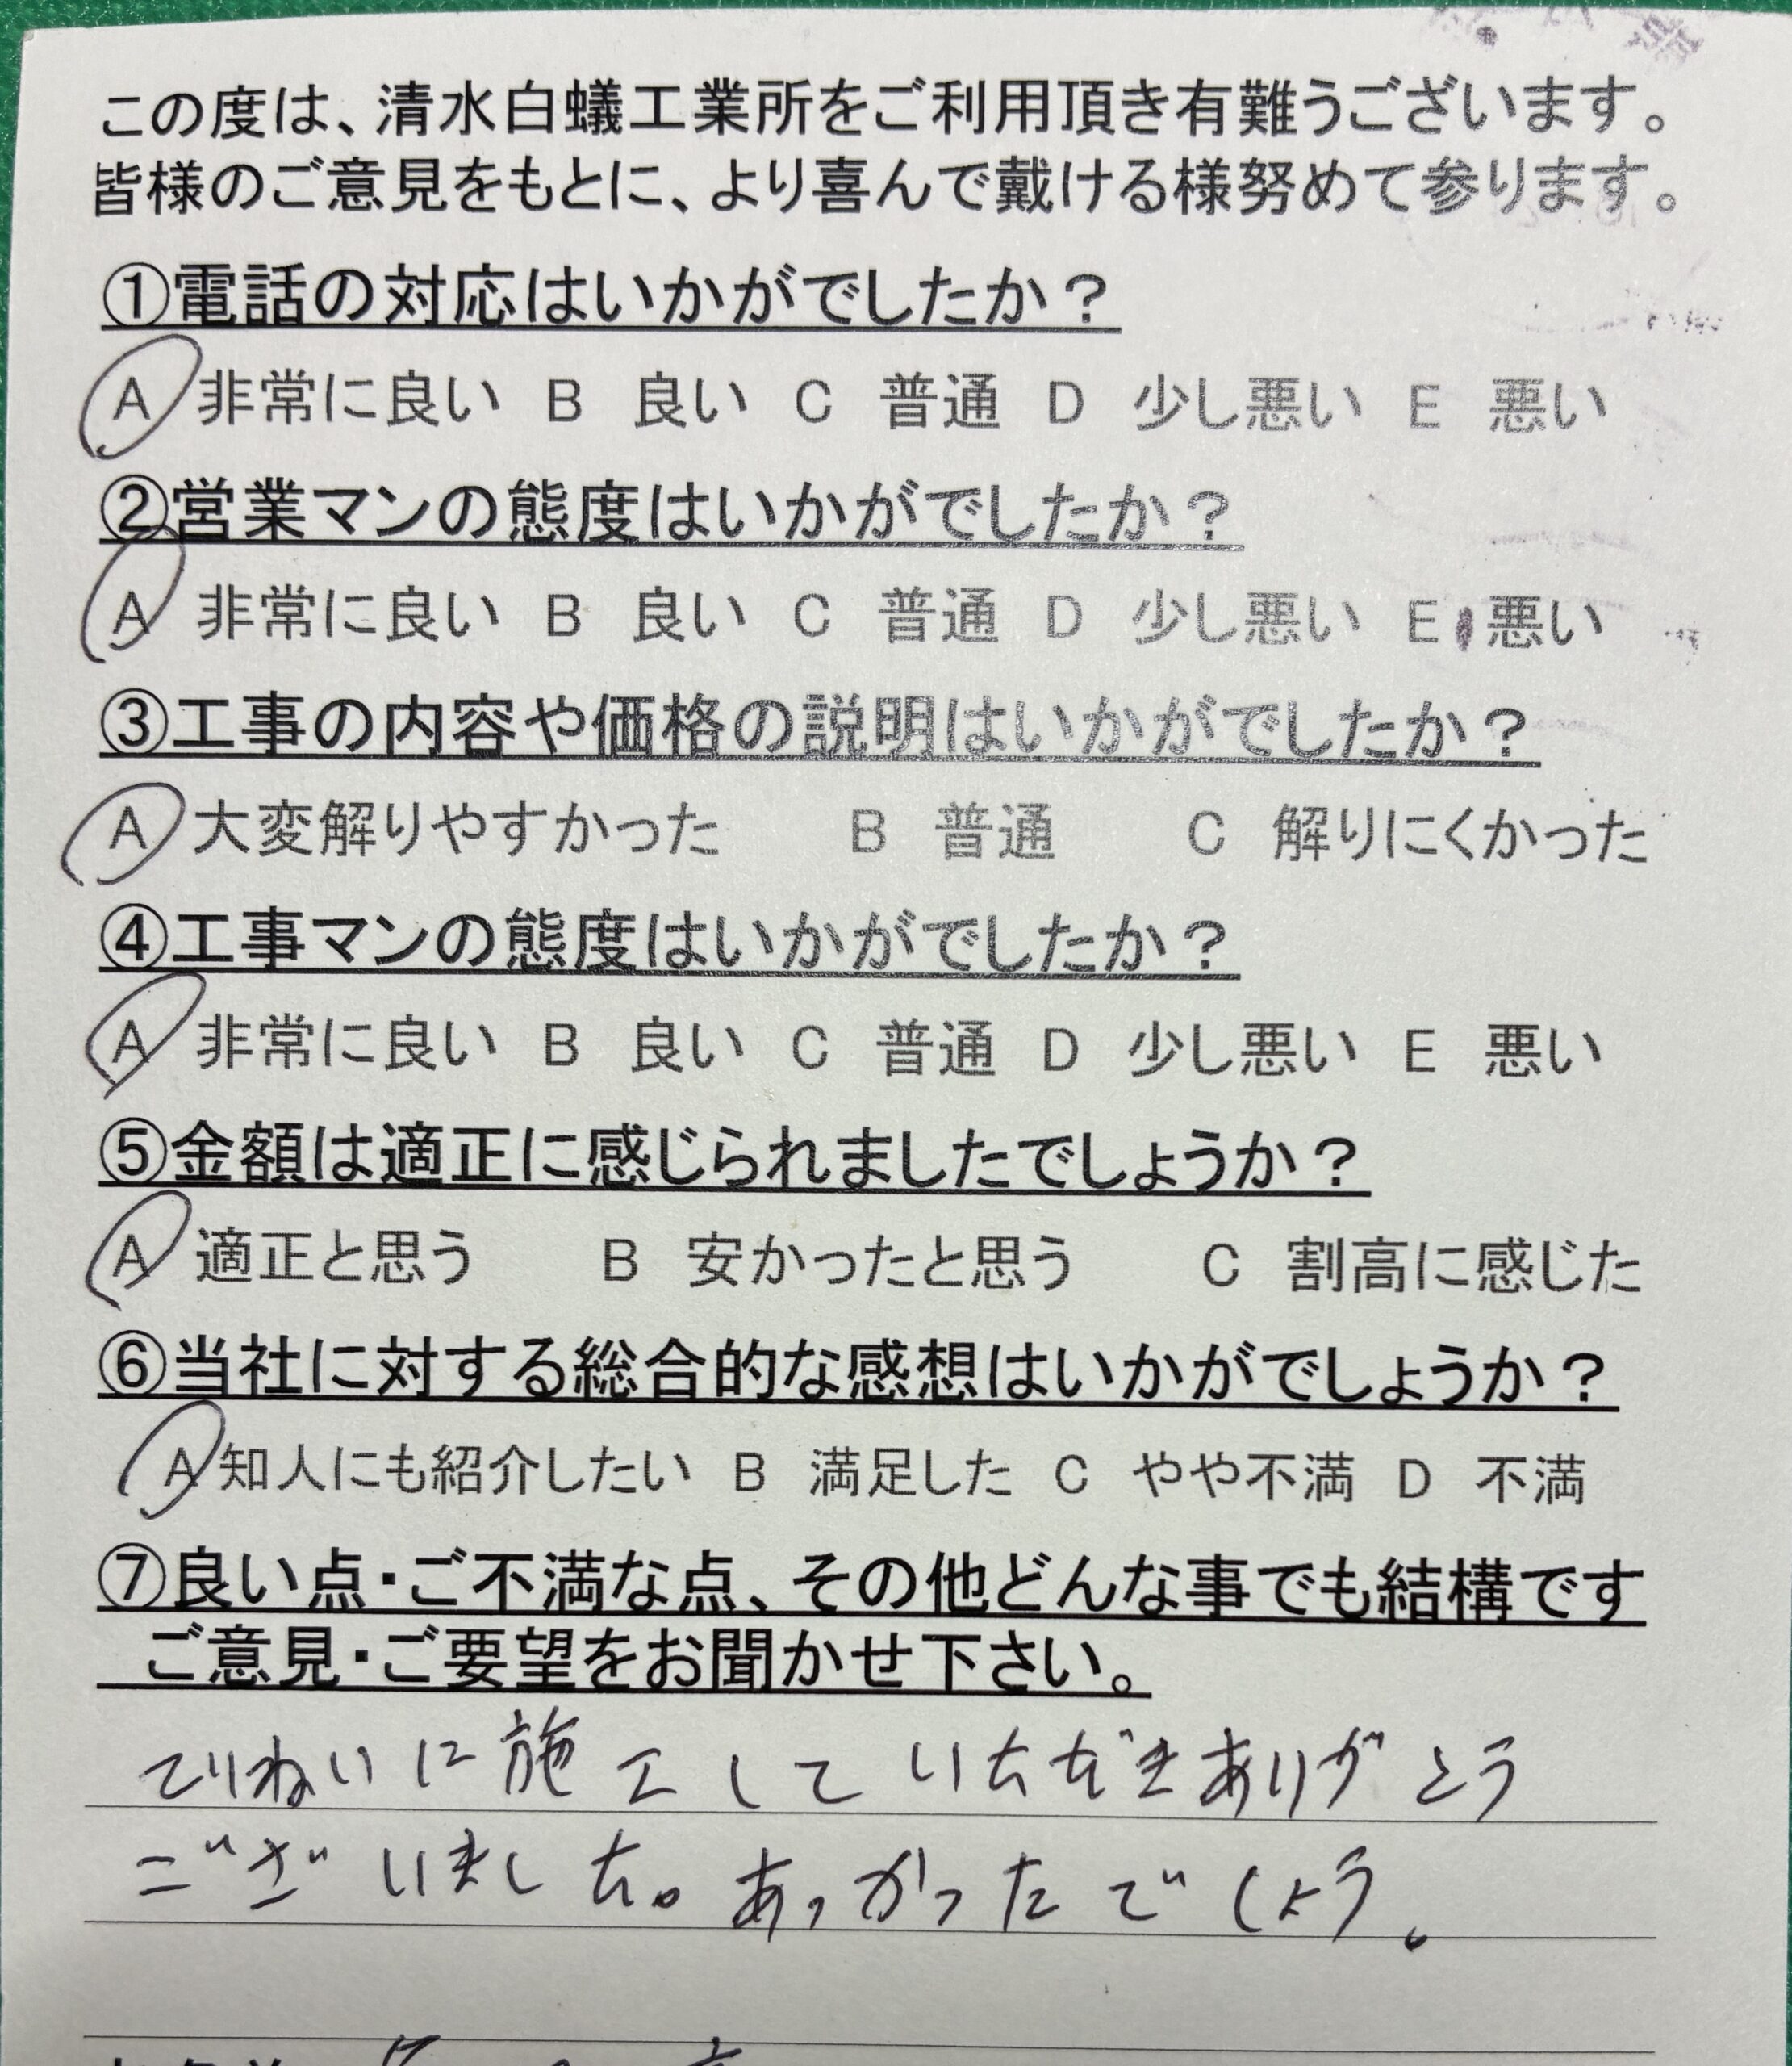 この度は、清水白蟻工業所をご利用頂き有難うございます。
皆様のご意見をもとに、より喜んで戴ける様努めて参ります。
①電話の対応はいかがでしたか？
A 非常に良い B 良い C 普通 D 少し悪い E 悪い
②営業マンの態度はいかがでしたか？
A 非常に良い B 良い C 普通 D 少し悪い E 悪い
③工事の内容や価格の説明はいかがでしたか？
A 大変解りやすかった B 普通 C 解りにくかった
④工事マンの態度はいかがでしたか？
A 非常に良い B 良い C 普通 D 少し悪い E 悪い
⑤金額は適正に感じられましたでしょうか？
A 適正と思う B 安かったと思う C 割高に感じた
⑥当社に対する総合的な感想はいかがでしょうか？
A 知人にも紹介したい B 満足した C やや不満 D 不満
⑦良い点・ご不満な点、その他どんな事でも結構です
ご意見・ご要望をお聞かせ下さい。
ていねいに施工していただきありがとう
ございました。あつかったでしょう。